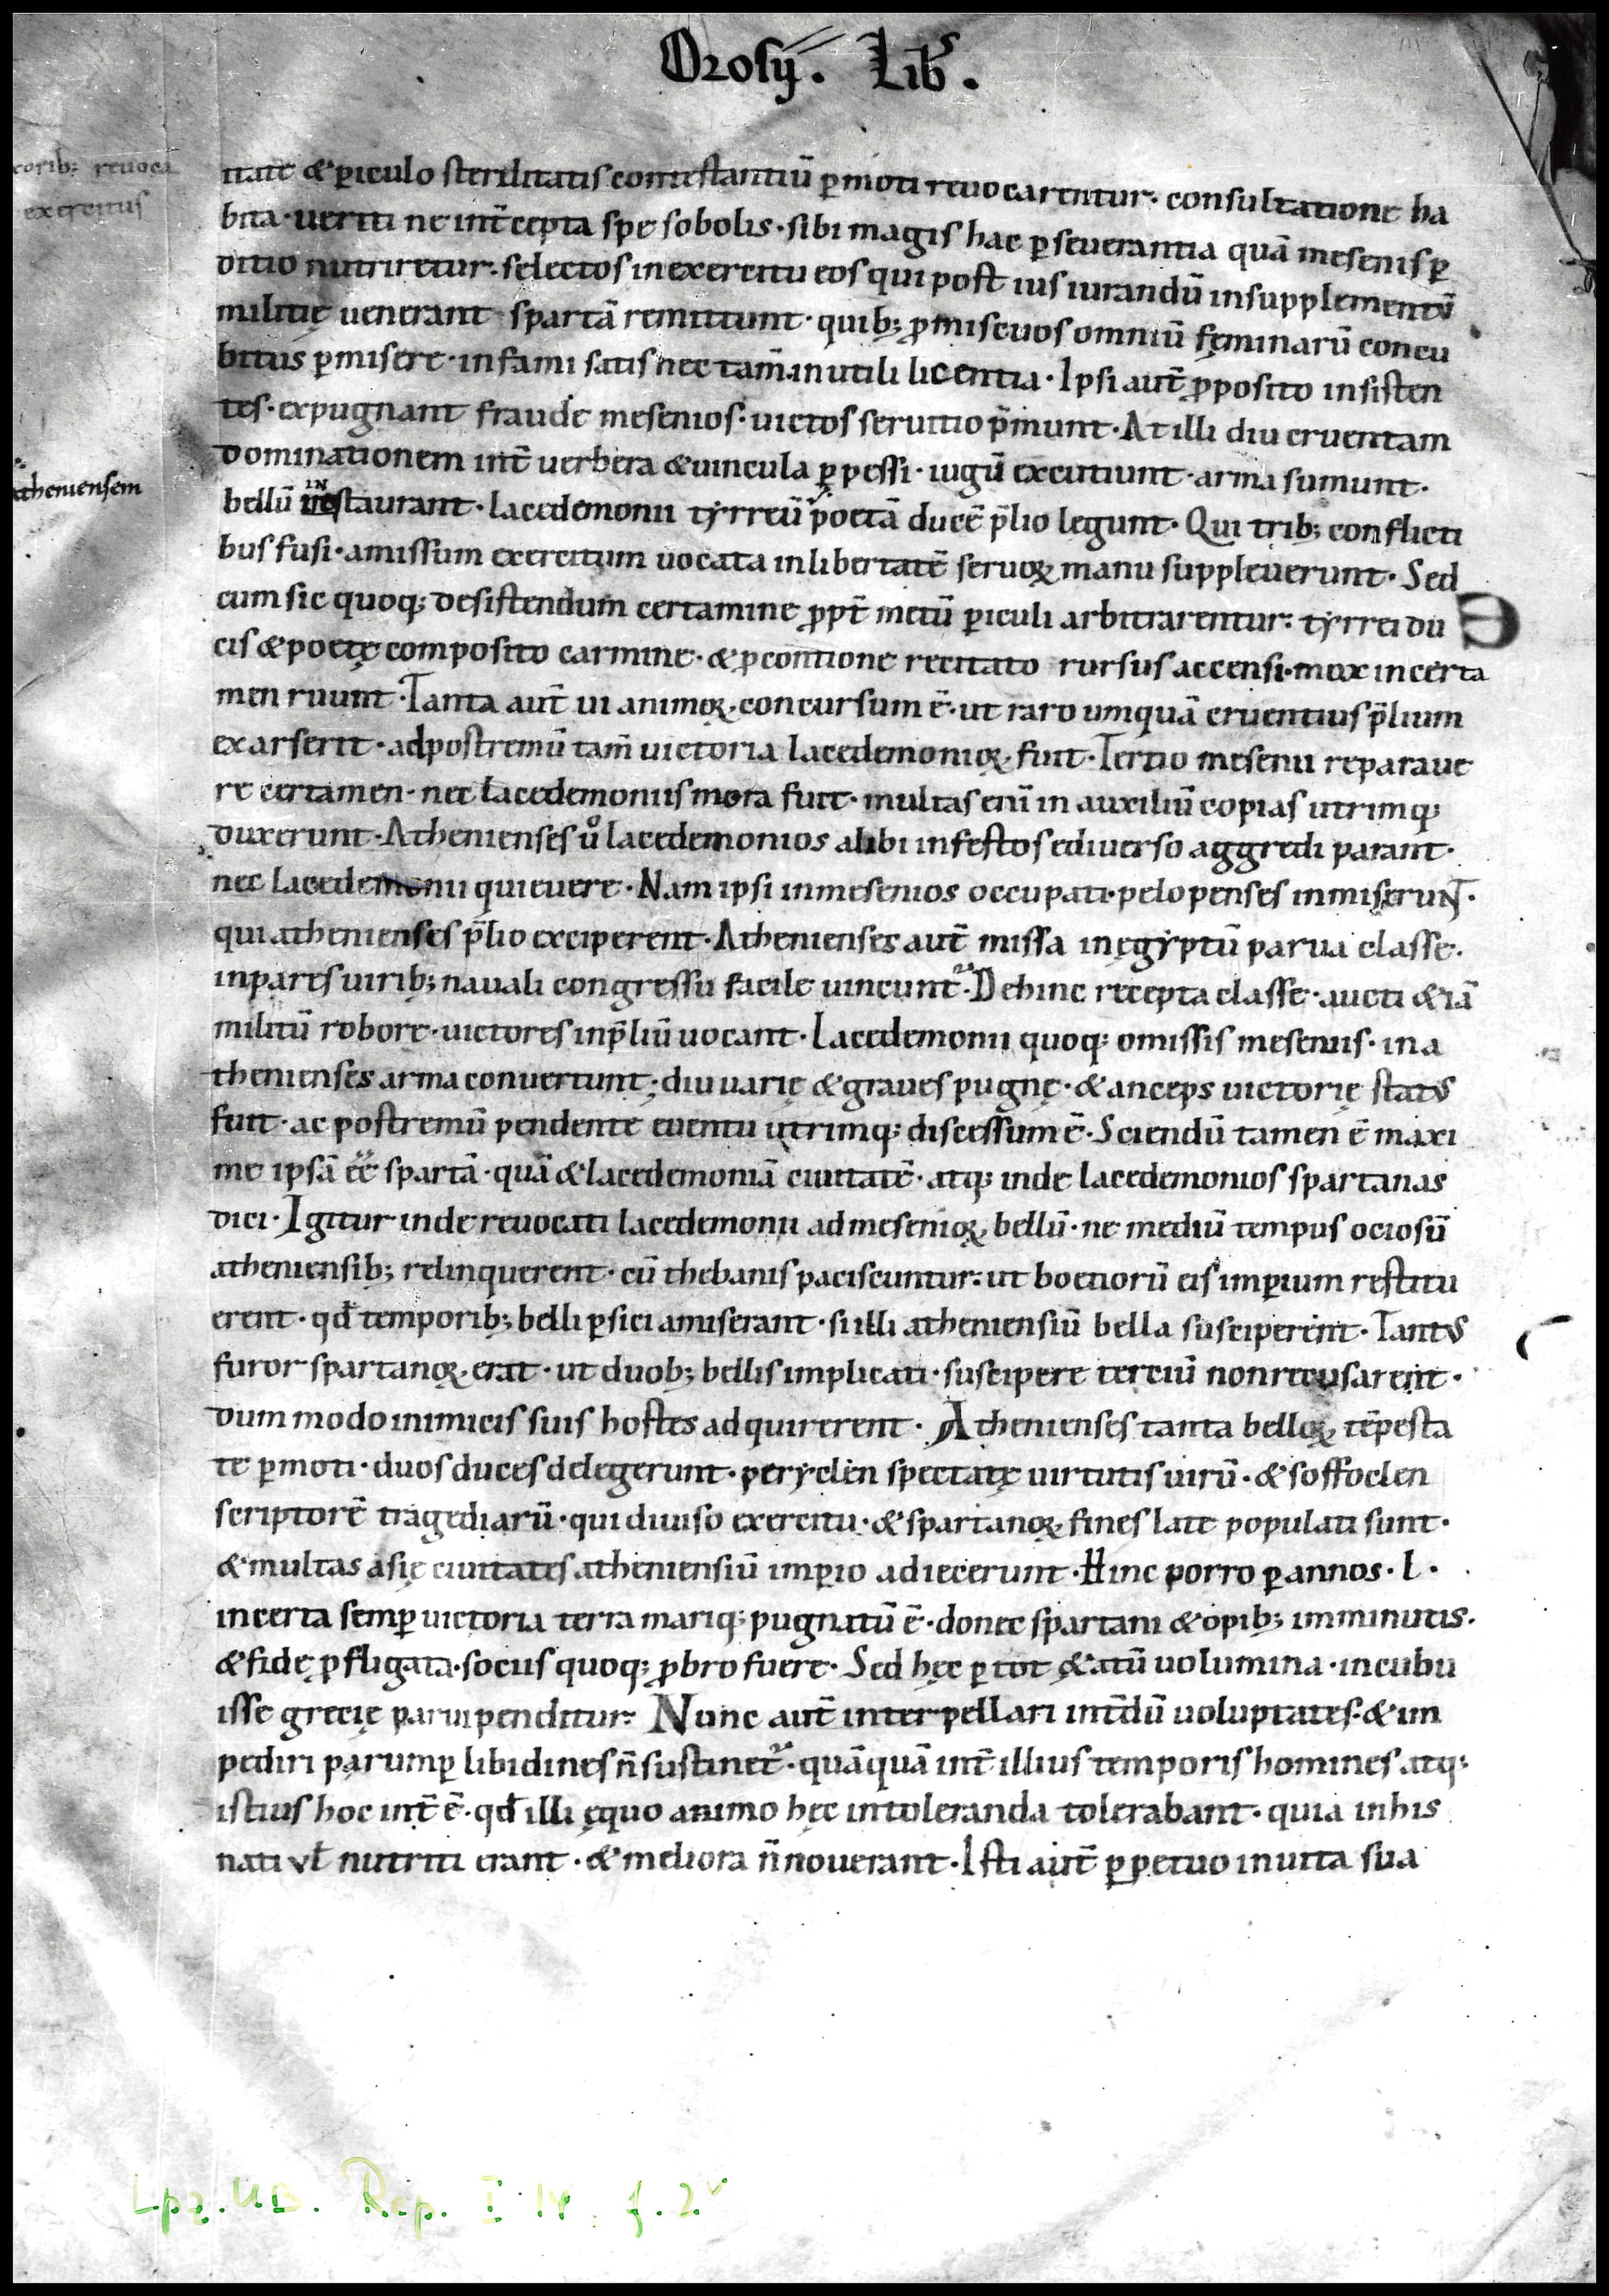 Orosij. Lib͛.
coribꝫ reuoca
exercitus
itate & ꝑiculo sterilitatis contestantiū ꝑmoti reuocarentur· consultatione ha
bita· ueriti ne int̄cepta spe sobolis· sibi magis hac ꝑseuerantia quā mesenis ꝑ
ditio nutriretur· selectos in exercitu eos qui post ius iurandū insupplementū
militię uenerant spartā remittunt· quibꝫ ꝓmiscuos omniū feminarū concu
bitus ꝑmisere· infami satis nec tam̄ inutili licentia· Ipsi aut̄ ꝓposito insisten
tes· expugnant fraude mesenios· uictos seruitio p̄munt· At illi diu cruentam
dominationem int̄ uerbera & uincula ꝑpessi· iugū excutiunt· arma sumunt·
atheniensem
bellū instaurant· lacedemonii tyrreū poetā ducē p̄lio legunt· Qui tribꝫ conflicti
bus fusi· amissum exercitum uocata in libertatē seruoꝝ manu suppleuerunt· Sed
cum sic quoqꝫ desistendum certamine ꝓpt̄ metū ꝑiculi arbitrarentur· tyrrei du
cis & poetę composito carmine· & ꝓ contione recitato rursus accensi· mox in certa
men ruunt· Tanta aut̄ ui animoꝝ· concursum ē· ut raro umquā cruentius p̄lium
exarserit· ad postremū tam̄ uictoria lacedemonioꝝ· fuit· Tertio mesenii reparaue
re certamen· nec lacedemoniis mora fuit· multas enī in auxiliū copias utrimqꝫ
duxerunt· Athenienses ů lacedemonios alibi infestos e diuerso aggredi parant·
nec lacedemonii quieuere· Nam ipsi in mesenios occupati· pelopenses inmiserunt·
qui athenienses p̄lio exciperent· Athenienses aut̄ missa in ęgyptū parua classe·
inpares uiribꝫ nauali congressu facile uincunt᷑· Dehinc recepta classe· aucti & iā
militū robore· uictores in p̄liū uocant· Lacedemonii quoqꝫ omissis mesenus· in a
thenienses arma conuertunt; diu uarię & graues pugnę· & anceps uictorię status
fuit· ac postremū pendente euentu utrimqꝫ discessum ē· Sciendū tamen ē maxi
me ipsā ēē spartā· quā & lacedemoniā ciuitatē· atqꝫ inde lacedemonios spartanas
dici· Igitur inde reuocati lacedemonii ad mesenioꝝ bellū· ne mediū tempus ociosū
atheniensibꝫ relinquerent· cū thebanis paciscuntur· ut boetiorū eis imꝑium restitu
erent· qđ temporibꝫ belli ꝑsici amiserant· si illi atheniensiū bella susciperent· Tantus
furor spartanoꝝ· erat· ut duobꝫ bellis implicati· suscipere terciū non recusarent·
dum modo inimicis suis hostes adquirerent· Athenienses tanta belloꝝ tēpesta
te ꝑmoti· duos duces delegerunt· peryclen spectatę uirtutis uirū· & soffoclen
scriptorē tragediarū· qui diuiso exercitu· & spartanoꝝ· fines late populati sunt·
& multas asię ciuitates atheniensiū imꝑio adiecerunt· Hinc porro ꝑ annos· L·
incerta semꝑ uictoria terra mariqꝫ pugnatū ē· donec spartani & opibꝫ imminutis·
& fidę ꝓfligata· sociis quoqꝫ ꝓbro fuere· Sed hęc ꝑ tot ętatū uolumina· incubu
isse grecię paruipenditur· Nunc aut̄ interpellari int̄dū uoluptates· & im
pediri parumꝑ libidines n̄ sustinet᷑· quāquā int̄ illius temporis homines atqꝫ
istius hoc int̄ ē· qđ illi ęquo animo hęc intoleranda tolerabant· quia in his
nati vł nutriti erant· & meliora n̄ nouerant· Isti aut̄ ꝑpetuo in uita sua
Lpz. UB. Rep. I 14 f. 2v